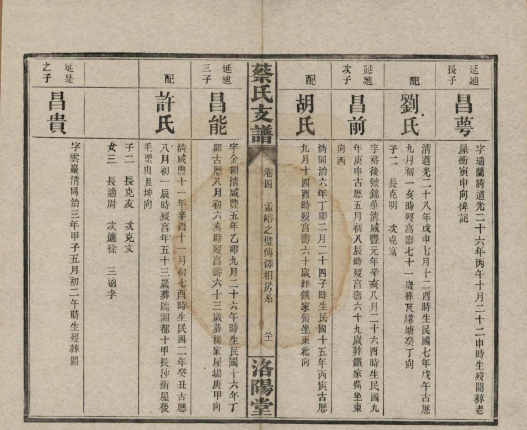 延𨔵長子
昌蕚
字瑞蘭清道光二十六年丙午十月二十二申時生歿闕葬老
屋衝寅申向碑記
配
劉氏
清道光二十八年戊申七月十二酉時生民國七年戊午古歷
九月初一亥時歿享壽七十一歲葬瓦縫塘癸丁向
子二 長克明 次克富
次子
昌前
字裕後號錦華清咸豐元年辛亥八月二十六酉時生民國九
年庚申古歷五月初八辰時歿享壽六十九歲葬鐵家衝坐東
向西
配
胡氏
清同治六年丁卯二月二十四子時生民國十五年丙寅古歷
九月十四酉時歿享壽六十歲葬鐵家衝坐東北向
蔡氏支譜
卷四
孟
之
傳澤相房系
洛陽堂
三子
昌能
字金和清咸豐五年乙卯九月二十六午時生民國十六年丁
卯古歷八月初六亥時歿享壽六十三歲葬楊家屋場庚甲向
配
許氏
清咸豐十一年辛酉十一月初七酉時生民國二年癸丑古歷
八月初一辰時歿享年五十三歲葬臨湘都十甲長沙衝屋後
毛栗山艮坤向
子二 長克友 次克文
女三 長適周 次適徐 三適李
延是之子
昌貴
字雲巖清同治三年甲子五月初二午時生歿葬闕